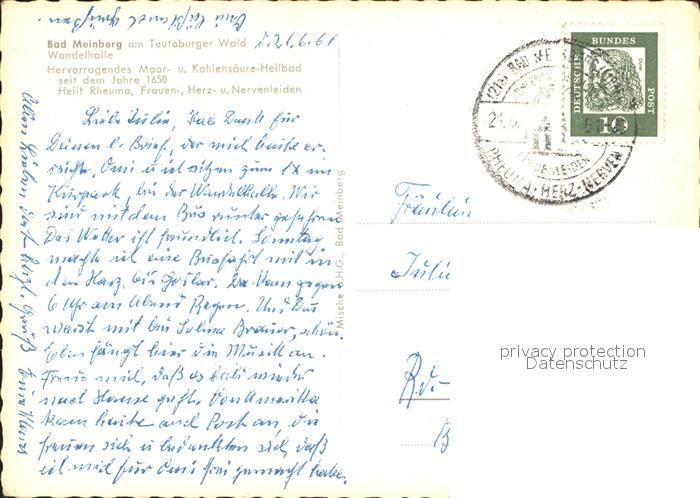 Omi läßt auch grüßen
Bad Meinberg am Teutoburger Wald
d. 21.6.61
Wandelhalle
Hervorragendes Moor- u. Kohlensäure-Heilbad
seit dem Jahre 1650
Heilt Rheuma, Frauen-, Herz- u. Nervenleiden
Liebe Julia, Hab Dank für
Deinen l. Brief, der mich heute er-
reichte. Omi u. ich sitzen zum 1x im
Kurpark, bei der Wandelhalle. Wir
sind mit dem Bus runter gefahren
Das Wetter ist freundlich. Sonntag
machte ich eine Busfahrt mit in
den Harz. bis Goslar. Da kam gegen
6 Uhr am Abend Regen. Und Du
warst mit bei Brauer, schön.
Eben fängt hier die Musik an.
Freue mich, daß es bald wieder
nach Hause geht. Von Amerika
kam heute auch Post an, die
freuen sich u. bedankten sich, daß
ich mich für Omi frei gemacht habe.
Allen Lieben, herzl. Grüße
Mische o.H.G., Bad Meinberg
DEUTSCHE BUNDESPOST
10
(21a) BAD MEINBERG
RHEUMA-HERZ-NERVEN
Fräulein
privacy protection
Datenschutz